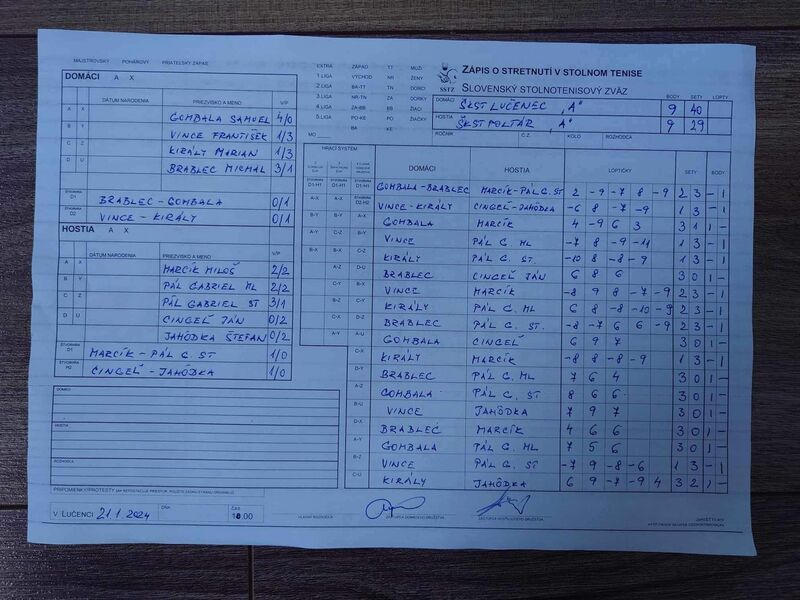 MAJSTROVSKÝ POHÁROVÝ PRIATEĽSKÝ ZÁPAS
DOMÁCI A X
DÁTUM NARODENIA PRIEZVISKO A MENO V/P
A X GOMBALA SAMUEL 4/0
B Y VINCE FRANTIŠEK 1/3
C Z KIRÁLY MARIAN 1/3
D U BRABLEC MICHAL 3/1
ŠTVORHRA D1 BRABLEC - GOMBALA 0/1
ŠTVORHRA D2 VINCE - KIRÁLY 0/1
HOSTIA A X
DÁTUM NARODENIA PRIEZVISKO A MENO V/P
A X MARCÍK MILOŠ 2/2
B Y PÁL GABRIEL ML 2/2
C Z PÁL GABRIEL ST 3/1
D U CINGEĽ JÁN 0/2
JAHÔDKA ŠTEFAN 0/2
ŠTVORHRA MARCÍK - PÁL G. ST 1/0
ŠTVORHRA H2 CINGEĽ - JAHÔDKA 1/0
DOMÁCI
HOSTIA
ROZHODCA
PRIPOMIENKY/PROTESTY
V LUČENCI 21.1.2024 DŇA ČAS 10.00
EXTRA ZÁPAD TT MUŽI
1 LIGA VÝCHOD NR ŽENY
2 LIGA BA-TT TN DORCI
3 LIGA NR-TN ZA DORKY
4 LIGA ZA-BB BB ŽIACI
5 LIGA PO-KE PO ŽIAČKY
BA KE
MO
SSTZ
ZÁPIS O STRETNUTÍ V STOLNOM TENISE
SLOVENSKÝ STOLNOTENISOVÝ ZVÄZ
BODY SETY LOPTY
DOMÁCI ŠKST LUČENEC "A" 9 40
HOSTIA ŠKST POLTÁR "A" 9 29
ROČNÍK Č.Z. KOLO ROZHODCA
HRACÍ SYSTÉM
DOMÁCI HOSTIA LOPTIČKY SETY BODY
D1-H1 D1-H1 D1-H1 GOMBALA-BRABLEC MARCÍK-PÁL G. ST 2 -9 -7 8 -9 2 3 - 1
A-X A-X D2-H2 VINCE - KIRÁLY CINGEĽ-JAHÔDKA -6 8 -7 -9 1 3 - 1
B-Y B-Y A-X GOMBALA MARCÍK 4 -9 6 3 3 1 1 -
A-Y C-Z B-Y VINCE PÁL G. ML -7 8 -9 -11 1 3 - 1
B-X B-X C-Z KIRÁLY PÁL G. ST. -10 8 -8 -9 1 3 - 1
A-Z D-U BRABLEC CINGEĽ JÁN 6 8 6 3 0 1 -
B-X VINCE MARCÍK -8 9 8 -7 -9 2 3 - 1
C-Y C-Y KIRÁLY PÁL G. ML 6 8 -8 -10 -9 2 3 - 1
B-Z BRABLEC PÁL G. ST. -8 -7 6 6 -9 2 3 - 1
A-Y A-U GOMBALA CINGEĽ 6 9 7 3 0 1 -
C-X KIRÁLY MARCÍK -8 8 -8 -9 1 3 - 1
D-Y BRABLEC PÁL G. ML 7 6 4 3 0 1 -
A-Z GOMBALA PÁL G. ST 8 6 6 3 0 1 -
B-U VINCE JAHÔDKA 7 9 7 3 0 1 -
D-X BRABLEC MARCÍK 4 6 6 3 0 1 -
A-Y GOMBALA PÁL G. ML 7 5 6 3 0 1 -
B-Z VINCE PÁL G. ST -7 9 -8 -6 1 3 - 1
C-U KIRÁLY JAHÔDKA 6 9 -7 -9 4 3 2 1 -
HLAVNÝ ROZHODCA ZÁSTUPCA DOMÁCEHO DRUŽSTVA ZÁSTUPCA HOSŤUJÚCEHO DRUŽSTVA